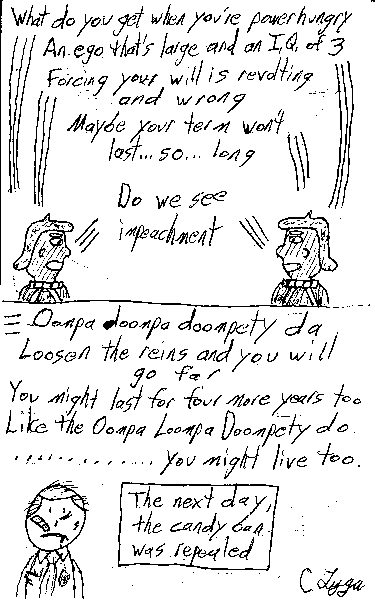 What do you get when you're power hungry
An ego that's large and an I.Q. of 3
Forcing your will is revolting
and wrong
Maybe your term won't
last... so... long
Do we see
impeachment
Oompa doompa doompety da
Loosen the reins and you will
go far
You might last for four more years too
Like the Oompa Loompa Doompety do.
............. you might live too.
The next day,
the candy ban
was repealed
C Lyga